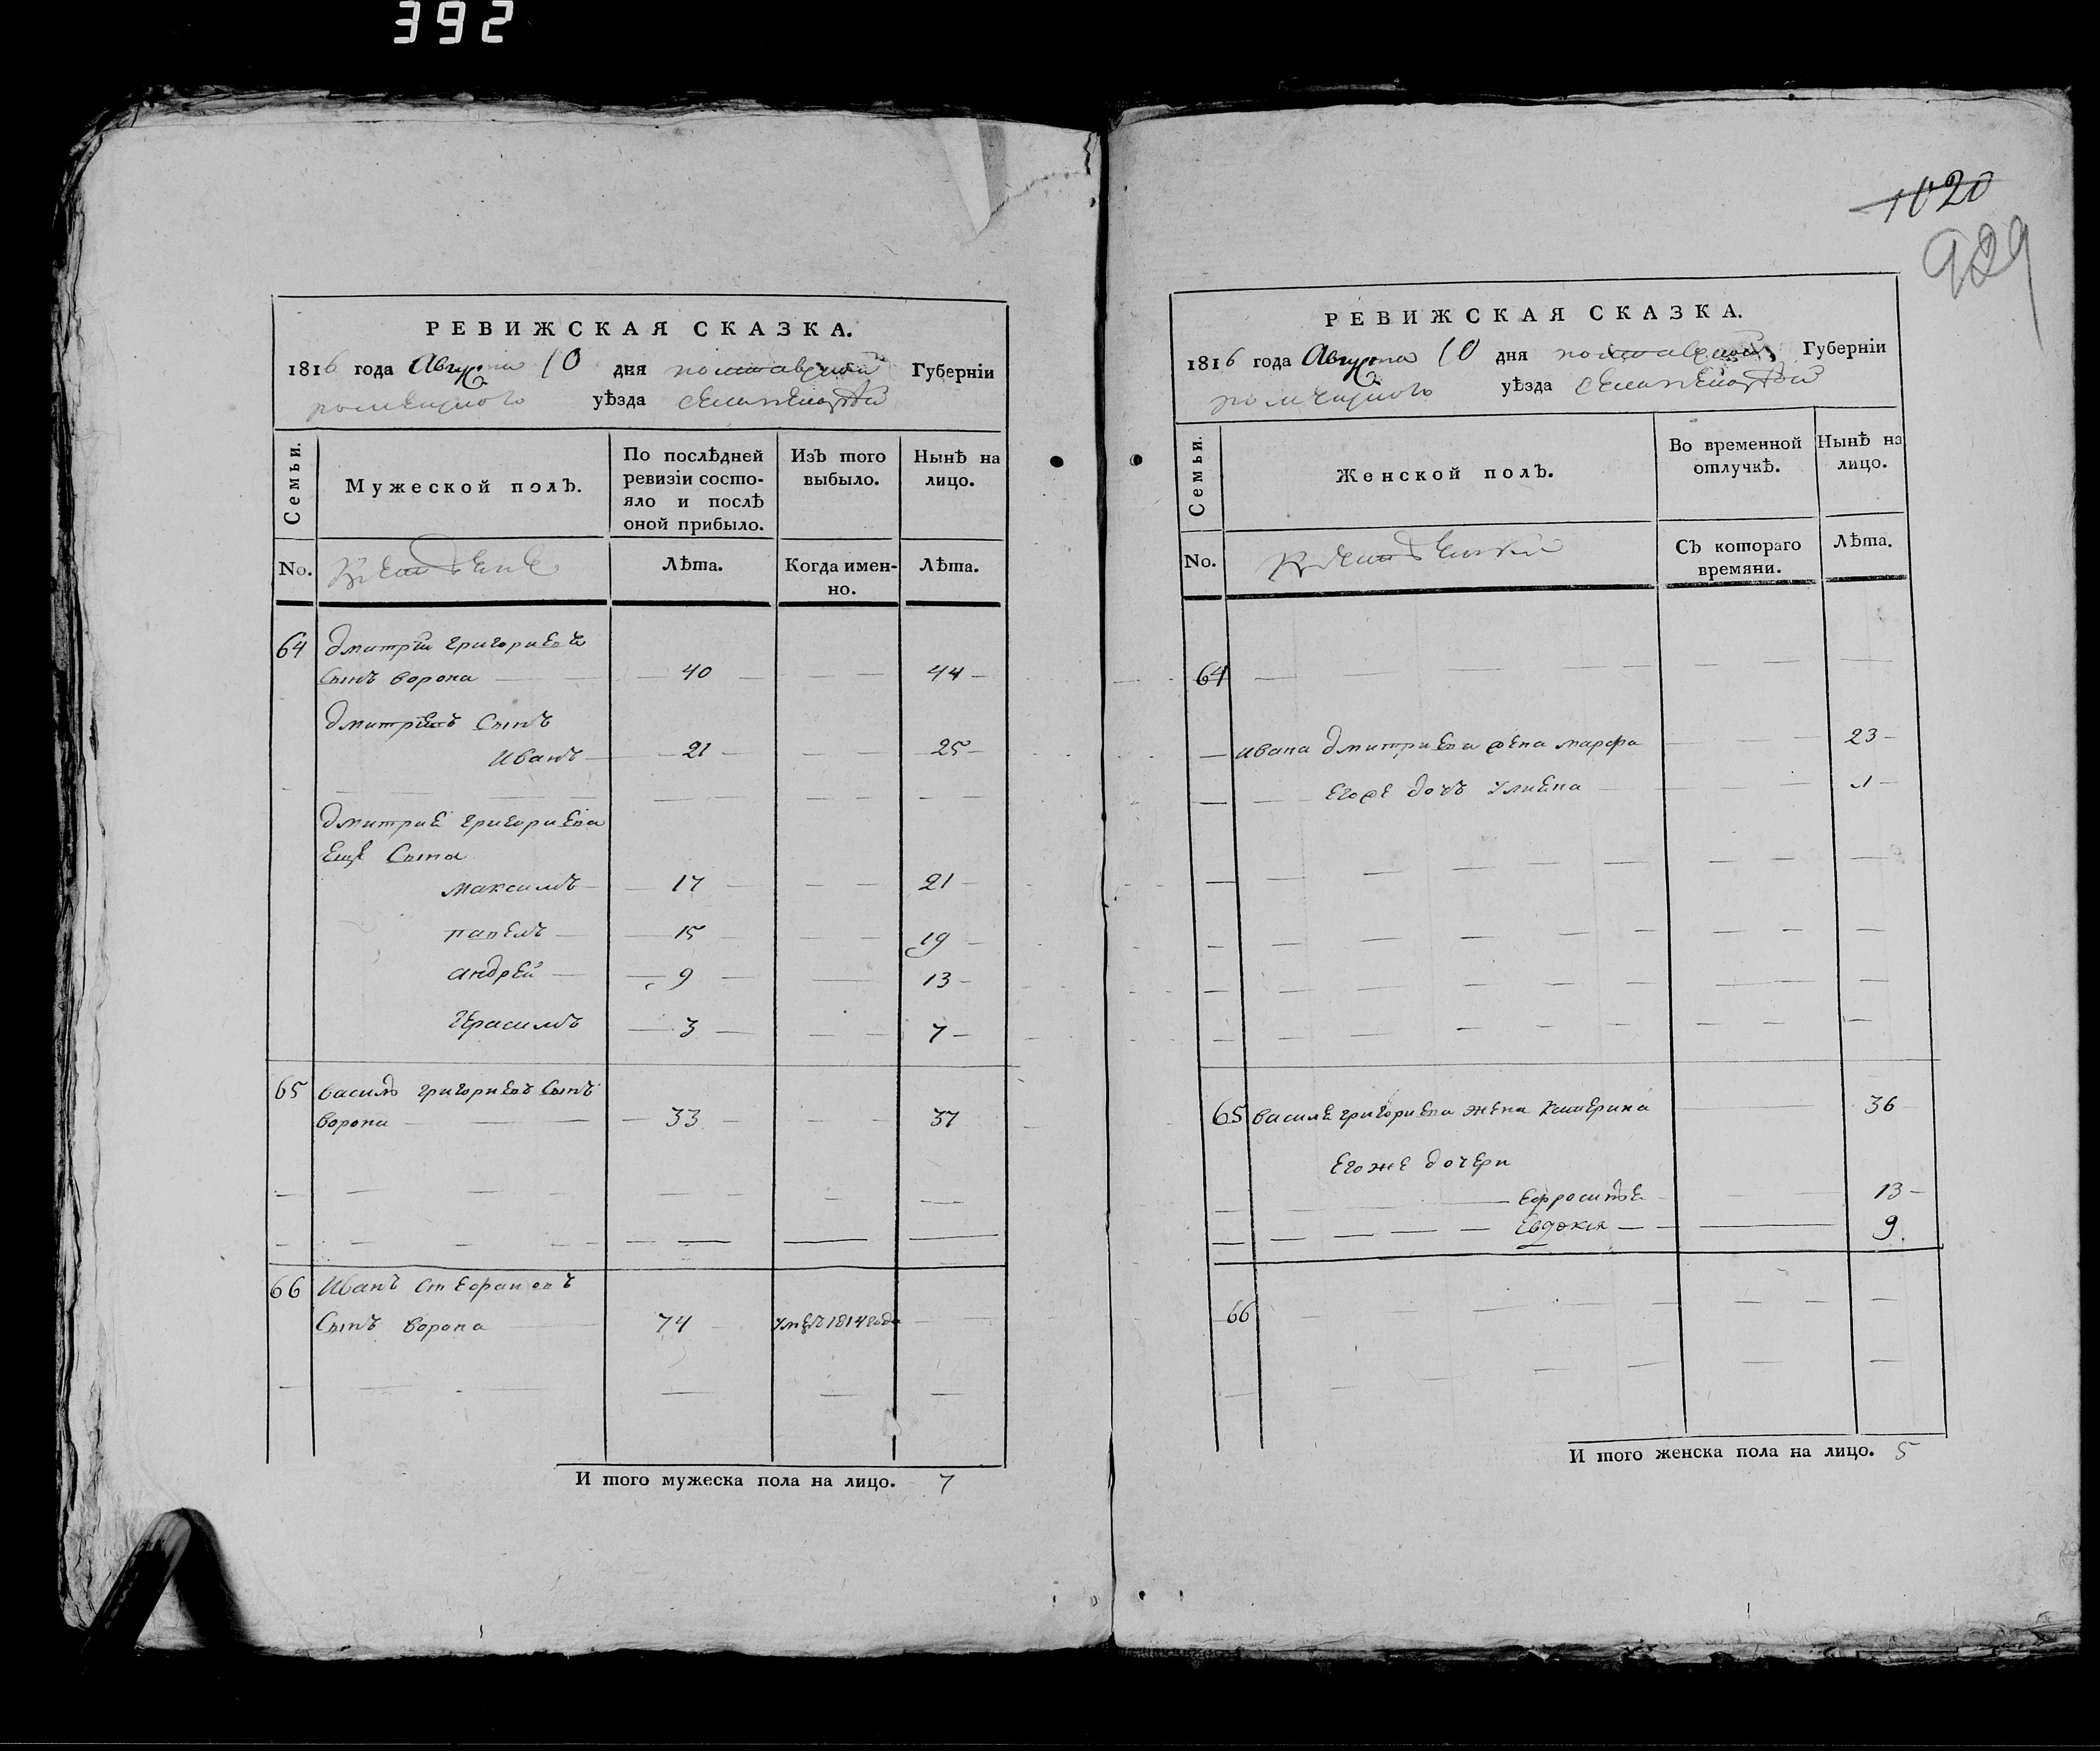 392
РЕВИЖСКАЯ СКАЗКА.
1816 года Августа 10 дня полтавской Губернїи
роменского уѣзда
Семьи.
Мужеской полъ.
По послѣдней ревизїи состо-яло и послѣ оной прибыло.
Изъ того выбыло.
Нынѣ на лицо.
No.
Лѣта.
Когда имен-но.
Лѣта.
64 дмитрїй григориевъ
сынъ ворона 40 44
дмитрїевъ сынъ
иванъ 21 25
дмитрие григориева
еще сына
максимъ 17 21
павелъ 15 19
андрей 9 13
герасимъ 3 7
65 василь григориевъ сынъ
ворона 33 37
66 иванъ стефановъ
сынъ ворона 74 умеръ 1814 года
И того мужеска пола на лицо. 7
1020
929
РЕВИЖСКАЯ СКАЗКА.
1816 года Августа 10 дня полтавской Губернїи
роменского уѣзда
Семьи.
Женской полъ.
Во временной отлучкѣ.
Нынѣ на лицо.
No.
Съ котораго времяни.
Лѣта.
64
ивана дмитриева жена марфа 23
егоже дочь улиена 1
65 василе григориева жена катерина 36
егоже дочери
ефросинье 13
евдокия 9.
66
И того женска пола на лицо. 5